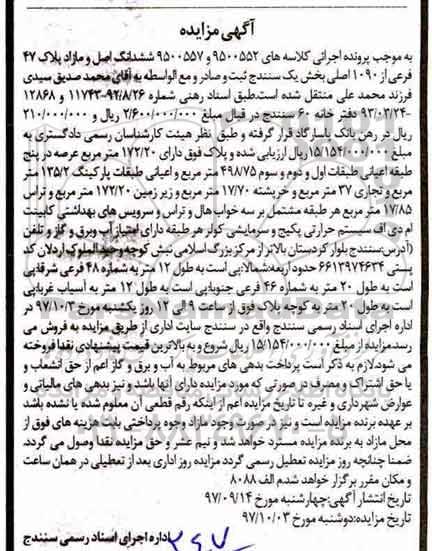 آگهی مزایده
به موجب پرونده اجرائی کلاسه های ۹۵۰۰۵۵۲ و ۹۵۰۰۵۵۷ ششدانگ اصل و مازاد پلاک ۴۷
فرعی از ۱۰۹۰ اصلی بخش یک سنندج ثبت و صادر و مع الواسطه به آقای محمد صدیق سیدی
فرزند محمد علی منتقل شده است.طبق اسناد رهنی شماره ۹۲/۸/۲۶-۱۱۷۴۳ و ۱۲۸۶۸
-۹۳/۰۲/۲۴ دفتر خانه ۲۰ سنندج در قبال مبلغ ۲/۶۰۰/۰۰۰/۰۰۰ ریال و ۲۱۰/۰۰۰/۰۰۰
ریال در رهن بانک پاسارگاد قرار گرفته و طبق نظر هیئت کارشناسان رسمی دادگستری به
مبلغ ۱۵/۱۵۴/۰۰۰/۰۰۰ ریال ارزیابی شده و پلاک فوق دارای ۱۷۲/۲۰ متر مربع عرصه در پنج
طبقه اعیانی طبقات اول و دوم و سوم ۴۹۸/۷۵ متر مربع و اعیانی طبقات پارکینگ ۱۳۵/۲ متر
مربع و تجاری ۳۷ متر مربع و خرپشته ۱۷/۷۰ متر مربع و زیر زمین ۱۷۲/۲۰ متر مربع و تراس
۱۷/۸۵ متر مربع هر طبقه مشتمل بر سه خواب هال و تراس و سرویس های بهداشتی کابینت
ام دی اف سیستم حرارتی پکیج و سرمایشی کولر هر طبقه دارای امتیاز آب وبرق و گاز و تلفن
(آدرس:سنندج بلوار کردستان بالاتر از مرکز بزرگ اسلامی نبش کوچه وحید الملوک اردلان کد
پستی ۶۶۱۳۹۷۴۶۳۴ حدود اربعه:شمالا:پی است به طول ۱۲ متر به شماره ۴۸ فرعی شرقا:پی
است به طول ۲۰ متر به شماره ۴۶ فرعی جنوبا:پی است به طول ۱۲ متر به آسیاب غربا:پی
است به طول ۲۰ متر به کوچه پلاک فوق از ساعت ۹ الی ۱۲ روز یکشنبه مورخ ۹۷/۱۰/۳ در
اداره اجرای اسناد رسمی سنندج واقع در سنندج سایت اداری از طریق مزایده به فروش می
رسد.مزایده از مبلغ ۱۵/۱۵۴/۰۰۰/۰۰۰ ریال شروع و به بالاترین قیمت پیشنهادی نقدا فروخته
می شود.لازم به ذکر است پرداخت بدهی های مربوط به آب و برق و گاز اعم از حق انشعاب و
یا حق اشتراک و مصرف در صورتی که مورد مزایده دارای آنها باشد و نیز بدهی های مالیاتی و
عوارض شهرداری و غیره تا تاریخ مزایده اعم از اینکه رقم قطعی آن معلوم شده یا نشده باشد
بر عهده برنده مزایده است و نیز در صورت وجود مازاد وجوه پرداختی بابت هزینه های فوق از
محل مازاد به برنده مزایده مسترد خواهد شد و نیم عشر و حق مزایده نقدا وصول می گردد.
ضمنا چنانچه روز مزایده تعطیل رسمی گردد مزایده روز اداری بعد از تعطیلی در همان ساعت
و مکان مقرر برگزار خواهد شد.م الف ۸۰۸۸
تاریخ انتشار آگهی:چهارشنبه مورخ ۹۷/۰۹/۱۴
تاریخ مزایده:دوشنبه مورخ ۹۷/۱۰/۰۳
اداره اجرای اسناد رسمی سنندج